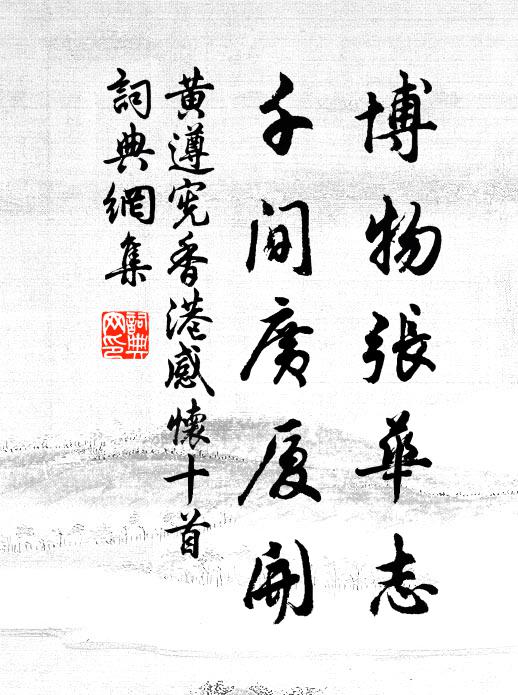 博物張華志
千間廣厦開
黄遵宪香港感懷十首
詞典網集
詞典網印